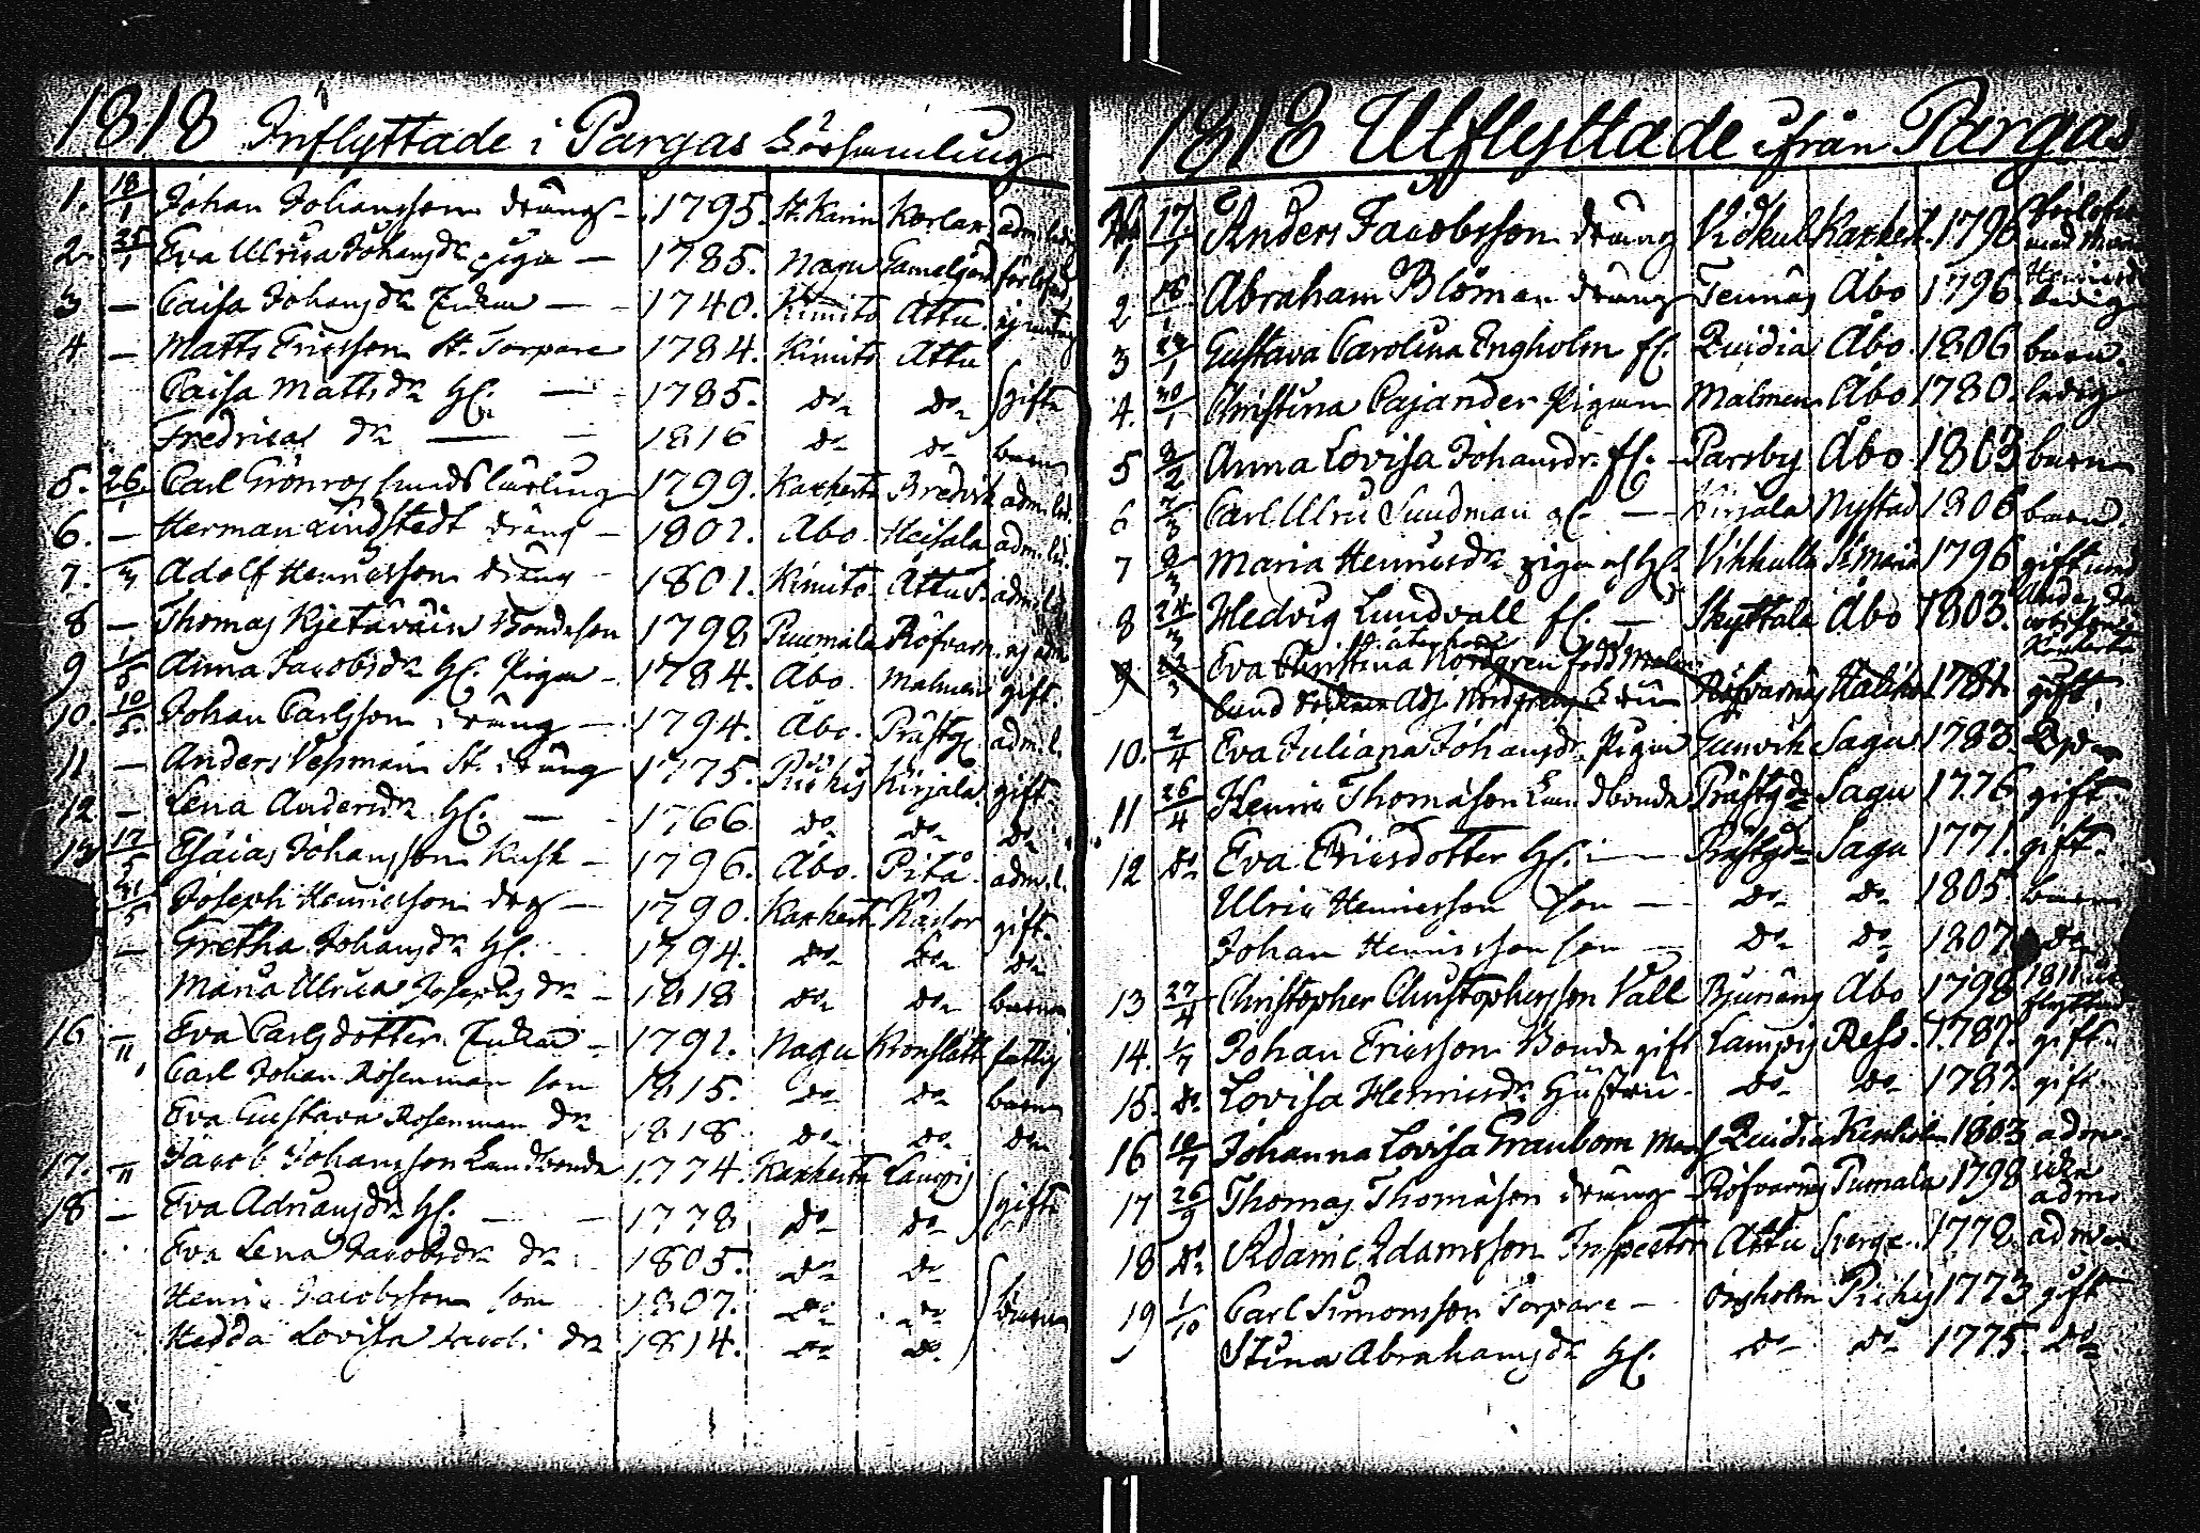 1818 Inflyttade i Pargas
1. 18/1 Johan Johansson dräng - 1795. St. Karin Korlax adm. ledig
2. 25/1 Eva Ulrica Johansdr piga - 1785. Nagu Gamelgård förlofvad
3 - Caisa Johansdr Enka - 1740. Kimito Attu.
4 - Matts Ericsson St. Torpare 1784. Kimito Attu
Caisa Mattsdr H. - 1785. do do gifte
Fredrica dr - 1816 do do barn
5. 26/1 Carl Grönros 1799. Karherta Bredvik adm. led.
6. - Herman Lindstedt dräng - 1802. Åbo Heisala adm. led.
7. Adolf Henricsson dräng - 1801. Kimito. Attu. adm. led.
8 - Thomas Kjetäväin Bondeson 1798 Puumala Röfvarn.
9 1/5 Anna Jacobsdr H. Piga - 1784. Åbo. Malmen gift.
10. 10/5 Johan Carlsson dräng - 1794. Åbo. Prästg. adm. l.
11. - Anders Vesman St. dräng 1775. Piikis Kirjala gift
12 - Lena Andersdr H. - 1766 do do do
13 17/5 Esaias Johansson Kusk - 1796. Åbo. Pita adm. l.
21/5 Joseph Henricsson drg - 1790. Karhert. gift.
- Gretha Johansdr H. 1794. do do do
Maria Ulrica Josephs dr - 1818 do do barn
16 - Eva Carlsdotter Enka - 1791. Nagu Kronslätt fattig
Carl Johan Rosenman son 1815. do do barn
Eva Gustava Rosenman dr 1818 do do do
17. Jacob Johansson Landbonde 1774. Karherta Lampis
18 - Eva Adriansdr H. - 1778 do do gifte
Eva Lena Jacobsdr dr 1805. do do
Henric Jacobsson son 1807. do do barn
Hedda Lovisa Jacobs dr 1814. do do
1818 Utflyttade ifrån Pargas
17/1 Anders Jacobsson dräng Vidkul Karhet. 1796
2 18/1 Abraham Bloman dräng Tennäs Åbo 1796. ledig
3 24/1 Gustava Carolina Engholm fl. Quidia Åbo. 1806 barn.
4. 30/1 Christina Cajander Pigan Malmen Åbo 1780. ledig
5 2/2 Anna Lovisa Johansdr. fl. - Parsby Åbo 1803 barn
6 2/3 Carl Ulric Sundman - Kirjala Nystad 1806 barn.
7 9/3 Maria Henricsdr piga Vikkulla St Marie 1796 gift med
8 24/3 Hedvig Lundvall fl. - Skyttala Åbo 1803.
9 Eva Christina Nordgren född Malm-
lund Röfvarnäs Haliko 1781. gift.
10. 2/4 Eva Juliana Johansdr. Piga Gunvik Sagu 1783.
11 26/4 Henric Thomasson Landbonde Prästgdn Sagu 1776 gift
12 do Eva Ericsdotter H. - Prästgdn Sagu 1771. gift.
Ulric Henricsson son - do do 1805. barn
Johan Henricsson son - do do 1807. do
13 27/4 Christopher Christophersson Vall Bjursäng Åbo 1798
14. 1/7 Johan Ericsson Bonde gift Lampis Reso. 1787. gift.
15. do Lovisa Henricsdr Hustru. do do 1787. gift.
16 10/7 Johanna Lovisa Granbom Mams Quidia Kimito 1803 adm.
17 26/9 Thomas Thomasson dräng - Röfvarnäs Pumala 1798 icke adm.
18 do Adam Adamsson Inspector Attu Sverge. 1772 adm
19 1/10 Carl Simonsson Torpare - Ersholm Pickis 1773 gift
Stina Abrahamsdr H. do do 1775. do